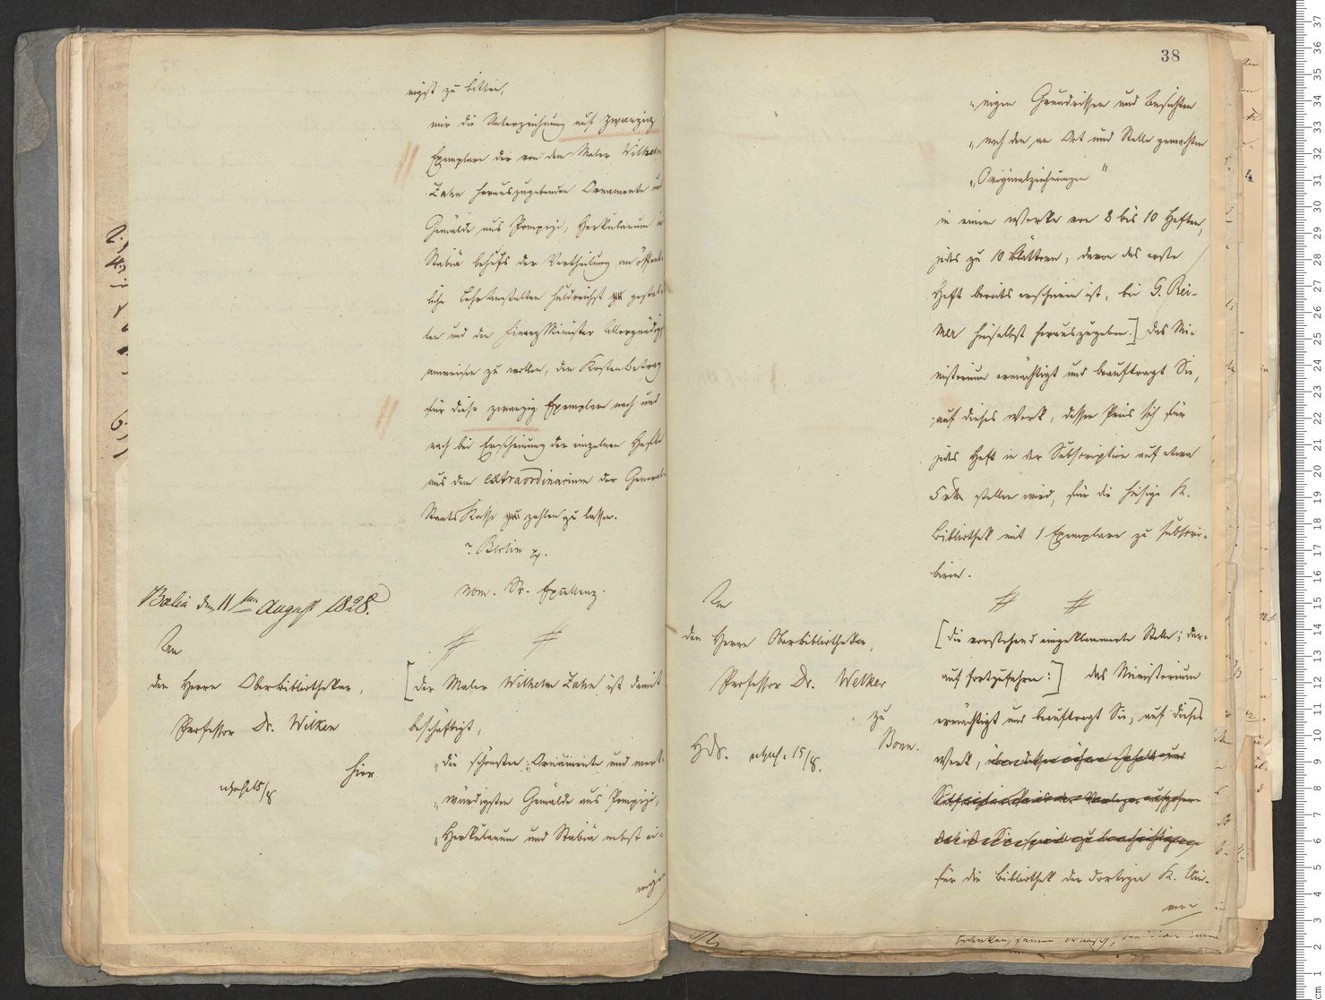 nigst zu bitten,
mir die Unterzeichnung auf zwanzig
Exemplare der von dem Maler Wilhelm
Zahn herauszugebenden Ornamente und
Gemälde aus Pompeji, Herkulanum u
Stabiä behufs der Vertheilung an öffent-
liche Lehranstalten huldreichst zu gestat-
ten und den FinanzMinister Allergnädigst
anweisen zu wollen, den Kostenbetrag
für diese zwanzig Exemplare nach und
nach bei Erscheinung der einzelnen Hefte
aus dem Extraordinarium der General-
Staats Kasse zahlen zu lassen.
Berlin
nom. Sr. Excellenz.
Berlin den 11ten August 1828.
An
den Herrn Oberbibliothekar,
Professor Dr. Wilken
hier
[der Maler Wilhelm Zahn ist damit
beschäftigt,
„die schönsten Ornamente und merk-
„würdigsten Gemälde aus Pompeji,
„Herkulanum und Stabiä nebst ei-
38
„nigen Grundrissen und Ansichten
„nach den an Ort und Stelle gemachten
„Originalzeichnungen"
in einem Werke von 8 bis 10 Heften,
jedes zu 10 Blättern, davon das erste
Heft bereits erschienen ist, bei G. Rei-
mer hieselbst herauszugeben.] Das Mi-
nisterium ermächtigt und beauftragt Sie,
auf dieses Werk, dessen Preis sich für
jedes Heft in der Subscription auf etwa
5 rh stellen wird, für die hiesige K.
Bibliothek mit 1 Exemplare zu subscri-
biren.
An
den Herrn Oberbibliothekar,
Professor Dr. Welker
zu
Bonn.
[die vorstehend eingeklammerte Stelle; dar-
auf fortzufahren:] das Ministerium
ermächtigt und beauftragt Sie, auf dieses
Werk,
für die Bibliothek der dortigen K. Uni-